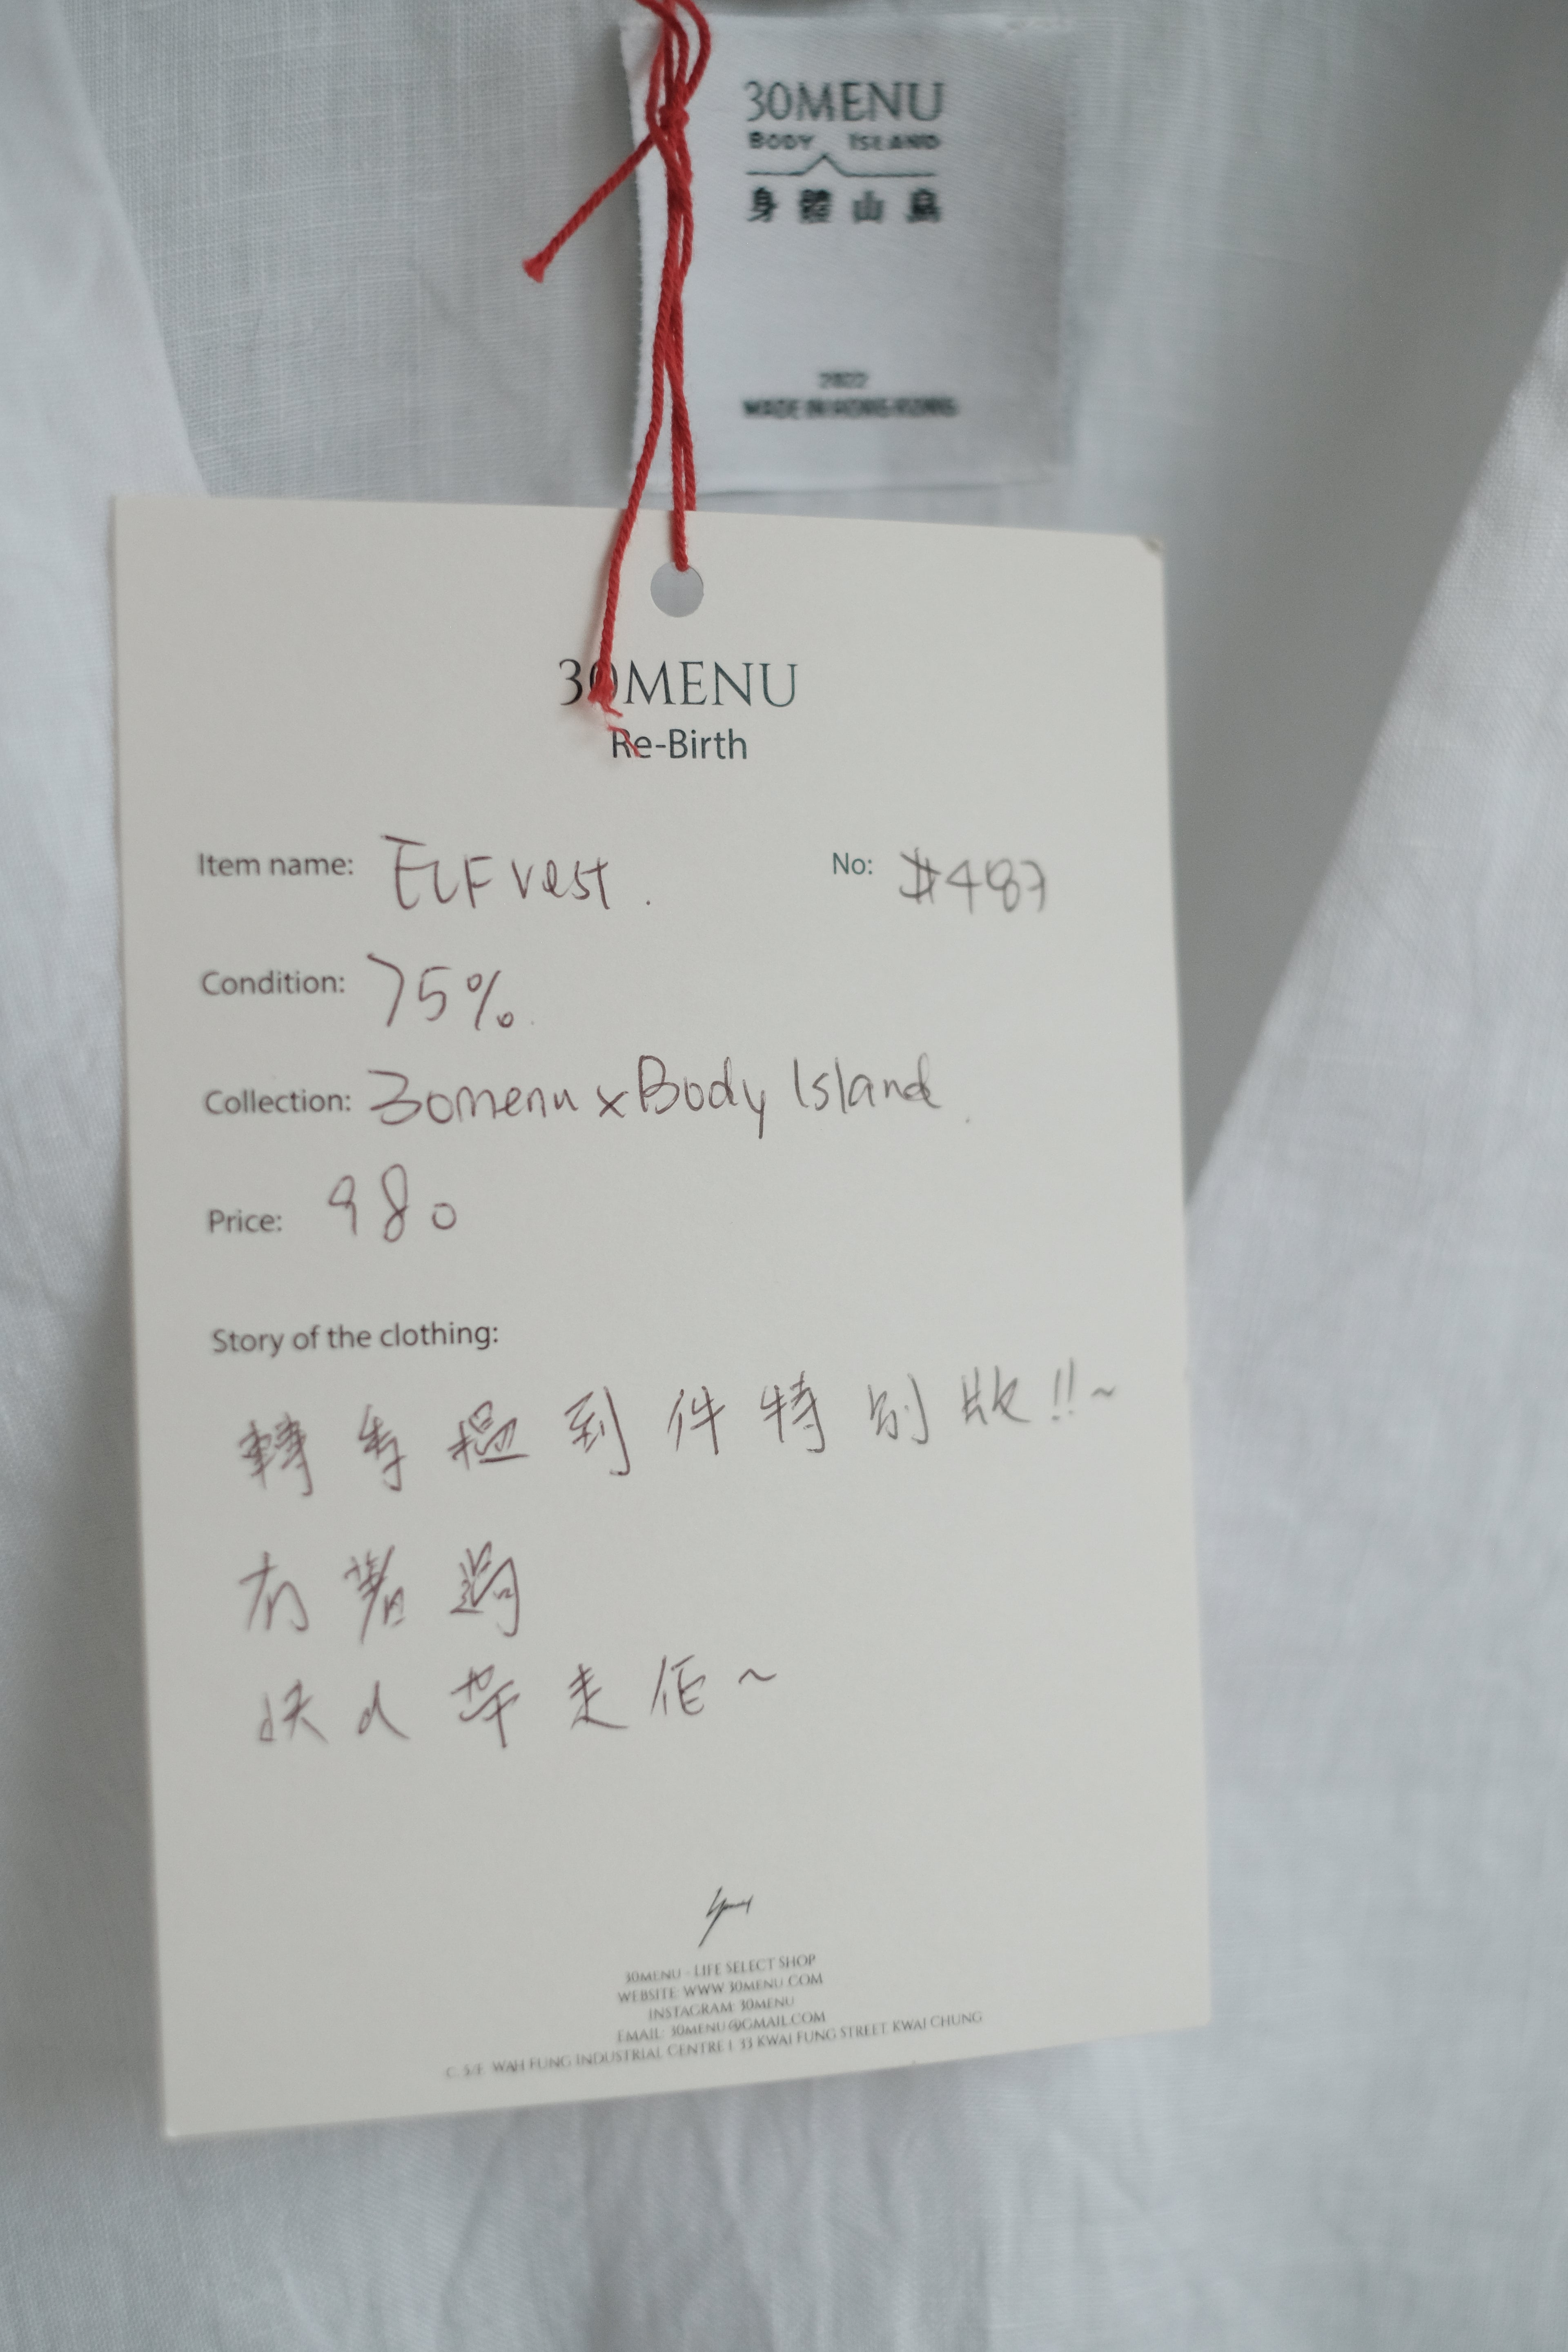 30MENU
BODY ISLAND
身體山島
2022
MADE IN HONG KONG
30MENU
Re-Birth
Item name: ELF vest. No: #487
Condition: 75%.
Collection: 30menu x Body Island.
Price: 980
Story of the clothing:
轉季搵到件特別版!!~
有著過
快D帶走佢~
30MENU - LIFE SELECT SHOP
WEBSITE: WWW.30MENU.COM
INSTAGRAM: 30MENU
EMAIL: 30MENU@GMAIL.COM
C, 5/F, WAH FUNG INDUSTRIAL CENTRE | 33 KWAI FUNG STREET, KWAI CHUNG